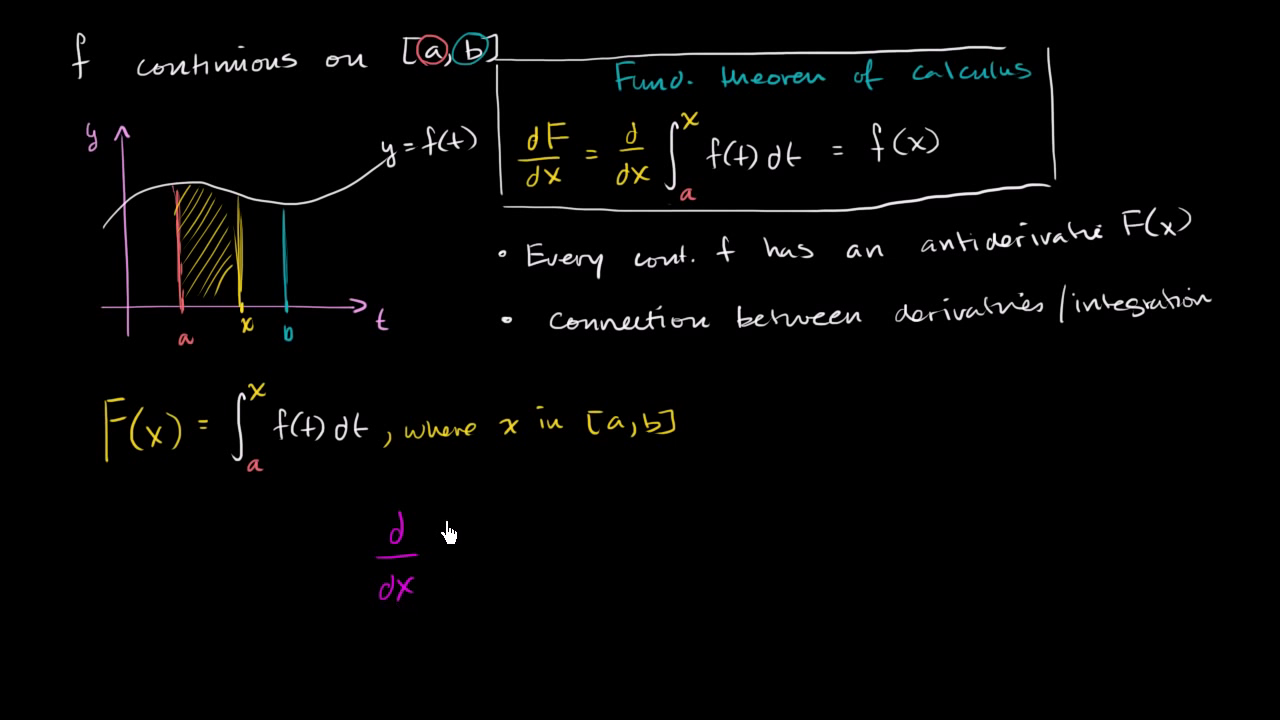 f continuous on [a, b]
Fund. theorem of calculus
dF/dx = d/dx ∫_a^x f(t) dt = f(x)
y
y = f(t)
a
x
b
t
• Every cont. f has an antiderivative F(x)
• connection between derivatives/integration
F(x) = ∫_a^x f(t) dt, where x in [a, b]
d/dx